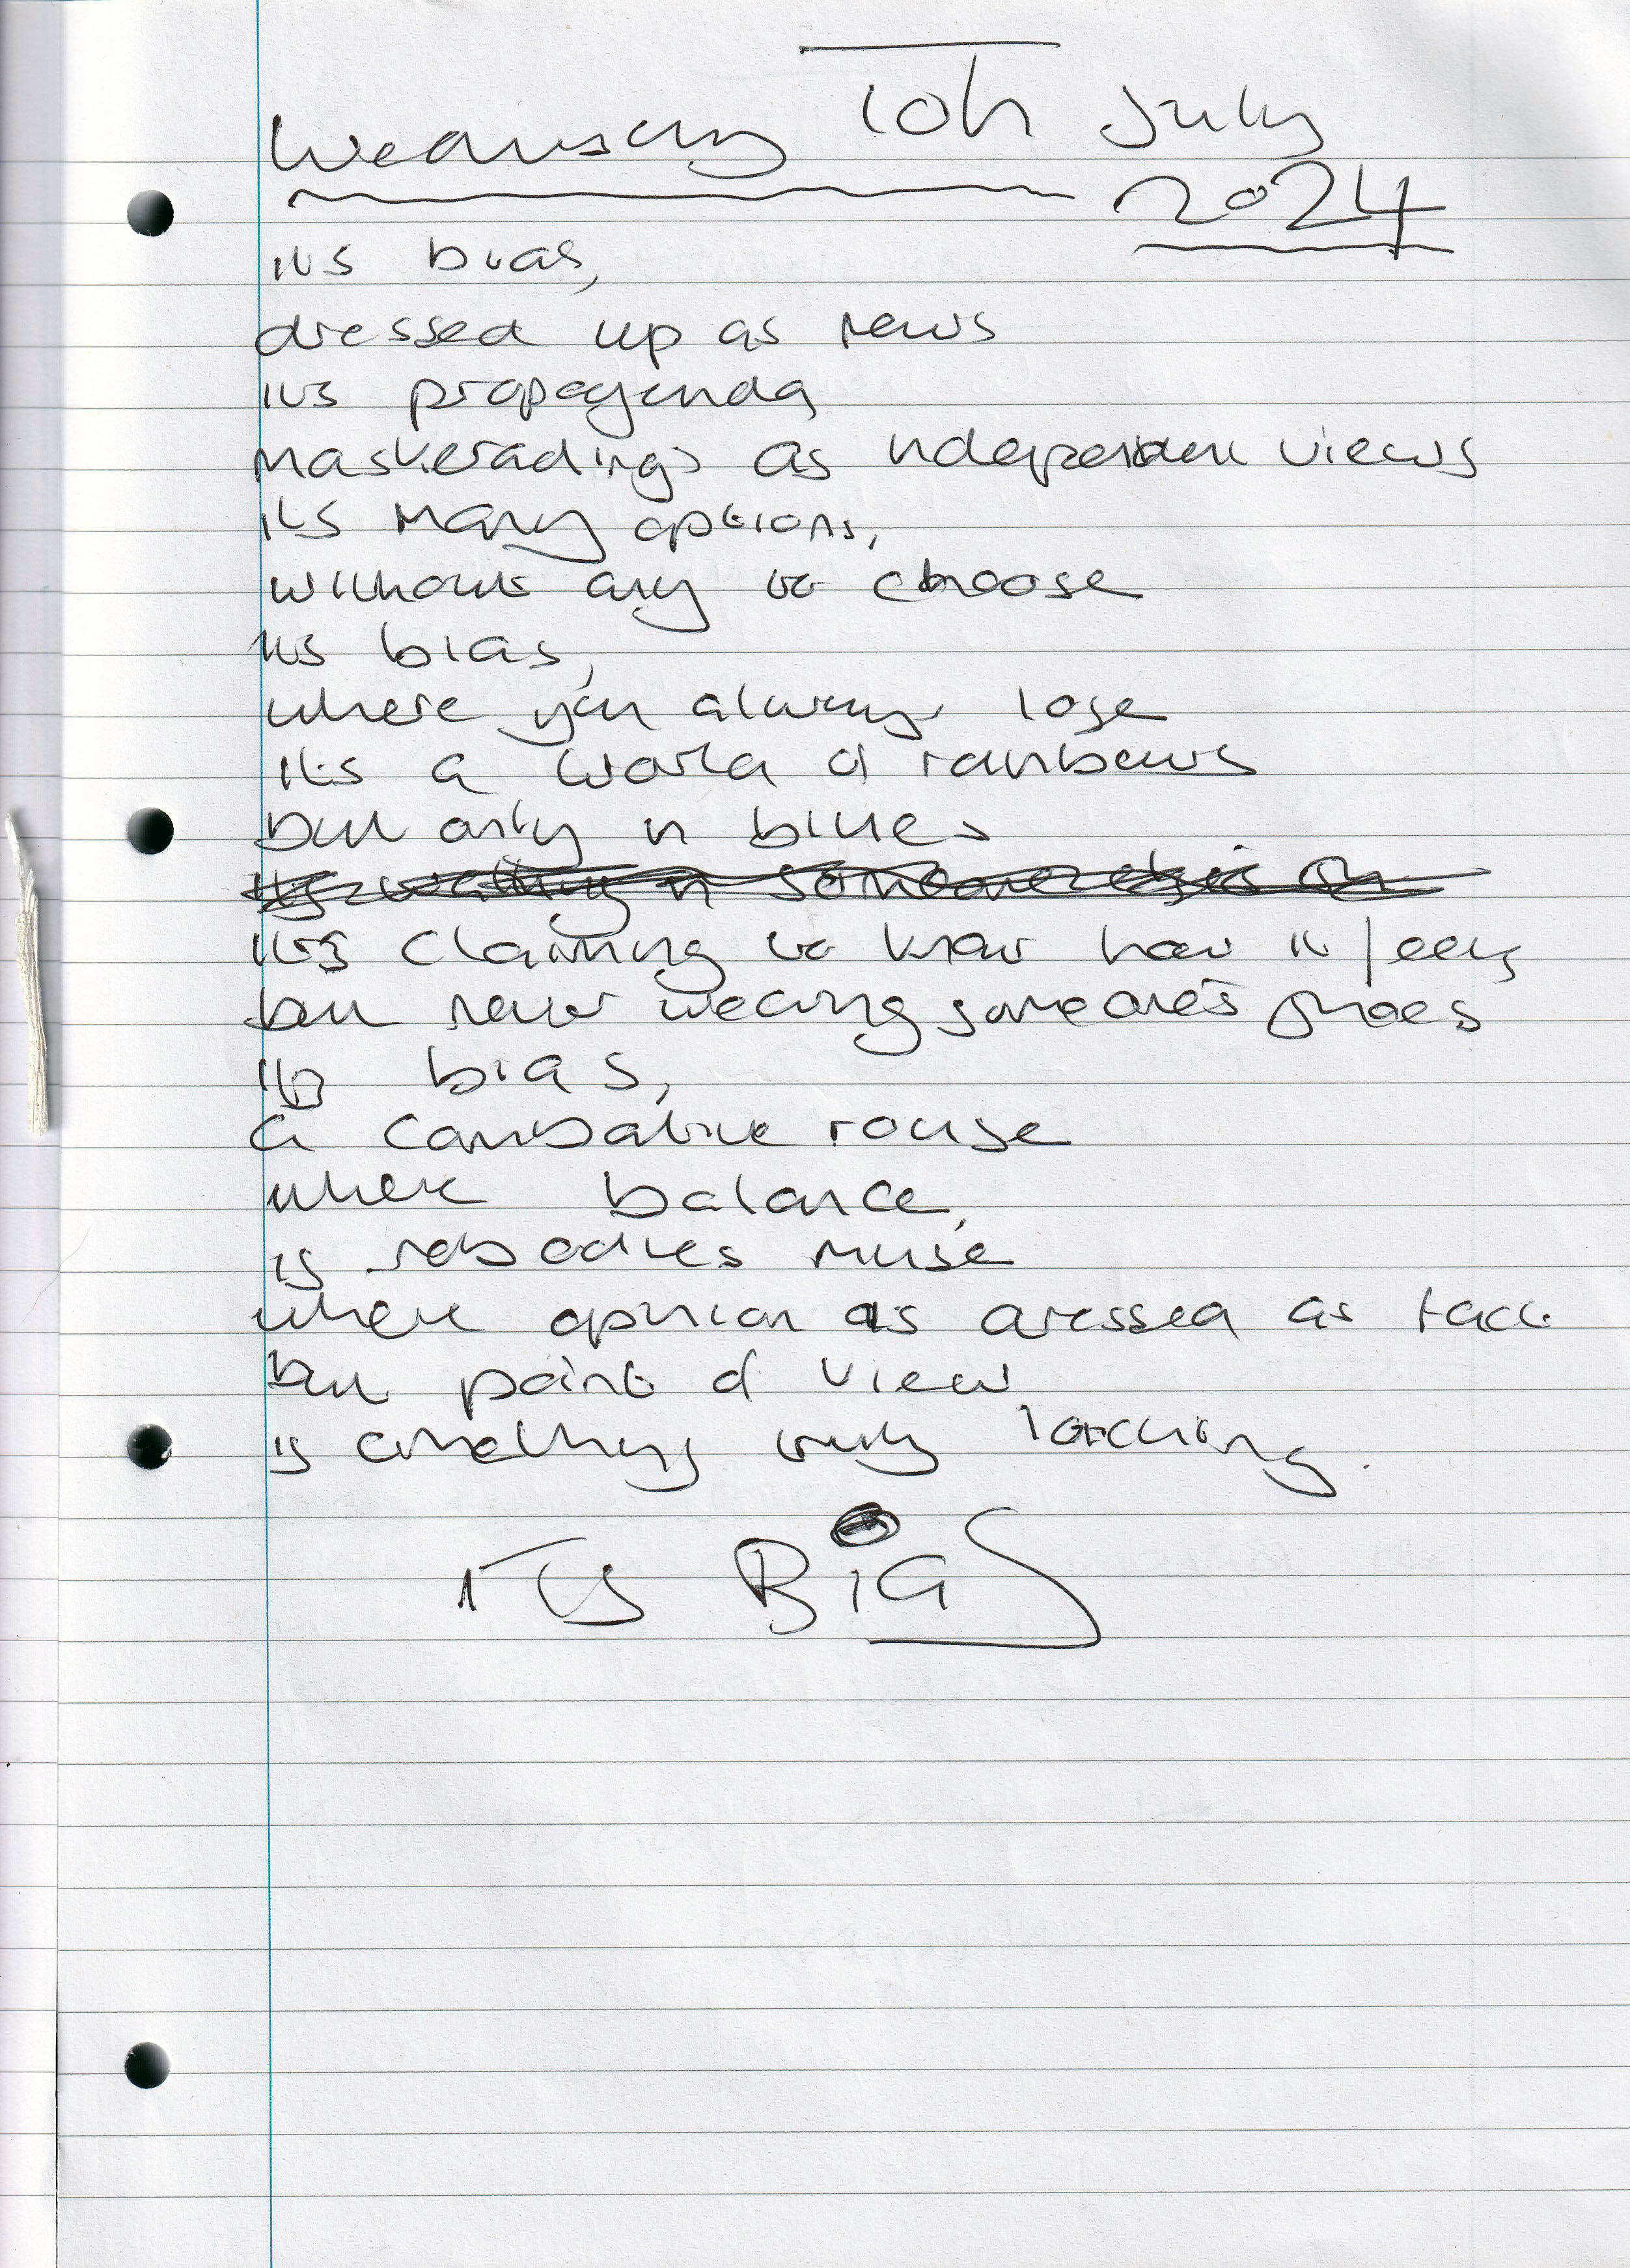 Wednesday 10th July
2024
its bias,
dressed up as news
its propagenda
maskeradings as independent views
its many options,
without any to choose
its bias,
where you always lose
its a world of rainbows
but only in blues
its walking in someone else's sh
its claiming to know how it feels
but never wearing someone's shoes
its bias,
a combative rouse
where balance,
is nobodies muse
where opinion is dressed as fact
but point of view
is something truly lacking.
ITS BiAS